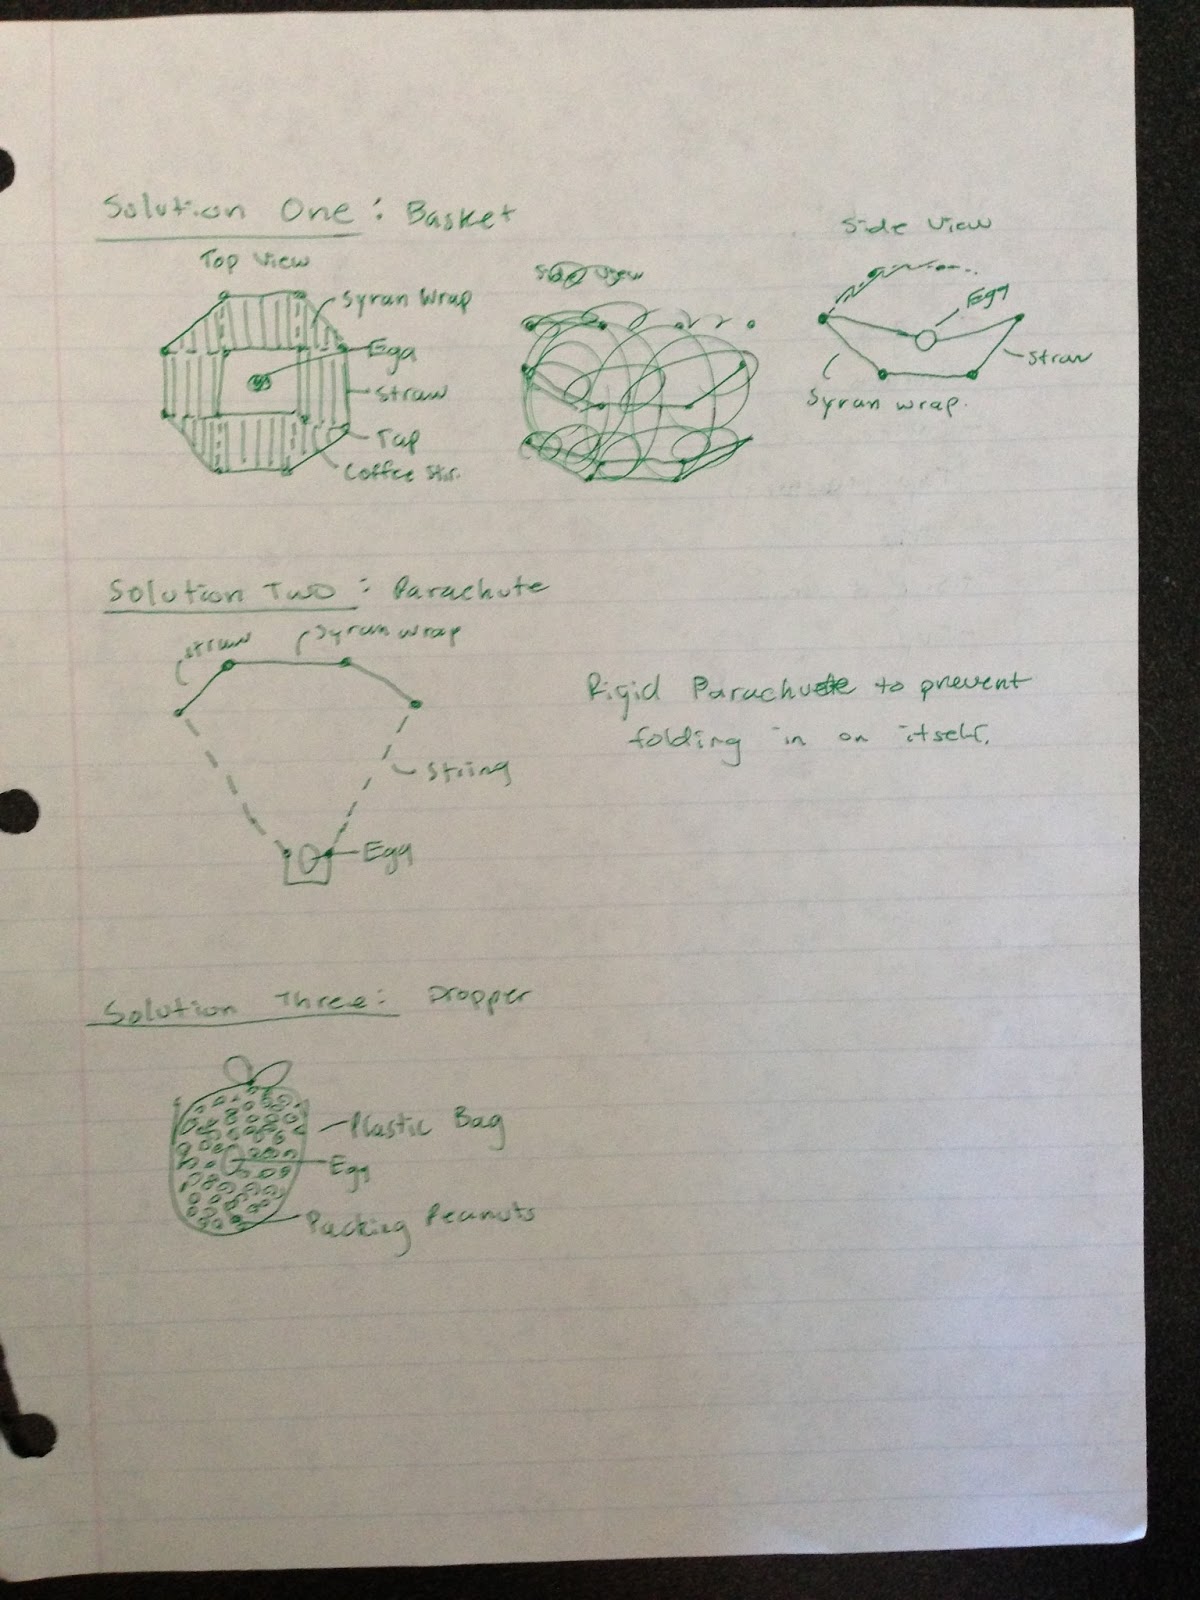 Solution One : Basket
Top View
Syran Wrap
Egg
Straw
Tap
Coffee Stir.
Side View
Side View
Egg
Straw
Syran wrap.
Solution Two : Parachute
straw
Syran wrap
String
Egg
Rigid Parachute to prevent
folding in on itself.
Solution Three : Dropper
Plastic Bag
Egg
Packing Peanuts